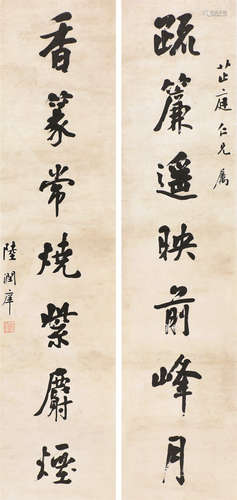 芷庭仁兄屬
疏簾遙映前峰月
香篆常燒紫麝煙
陸潤庠